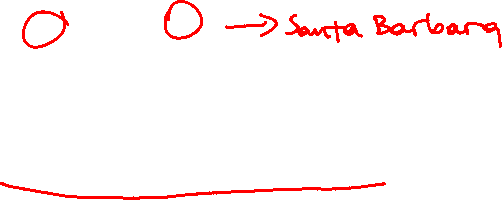 Santa Barbara